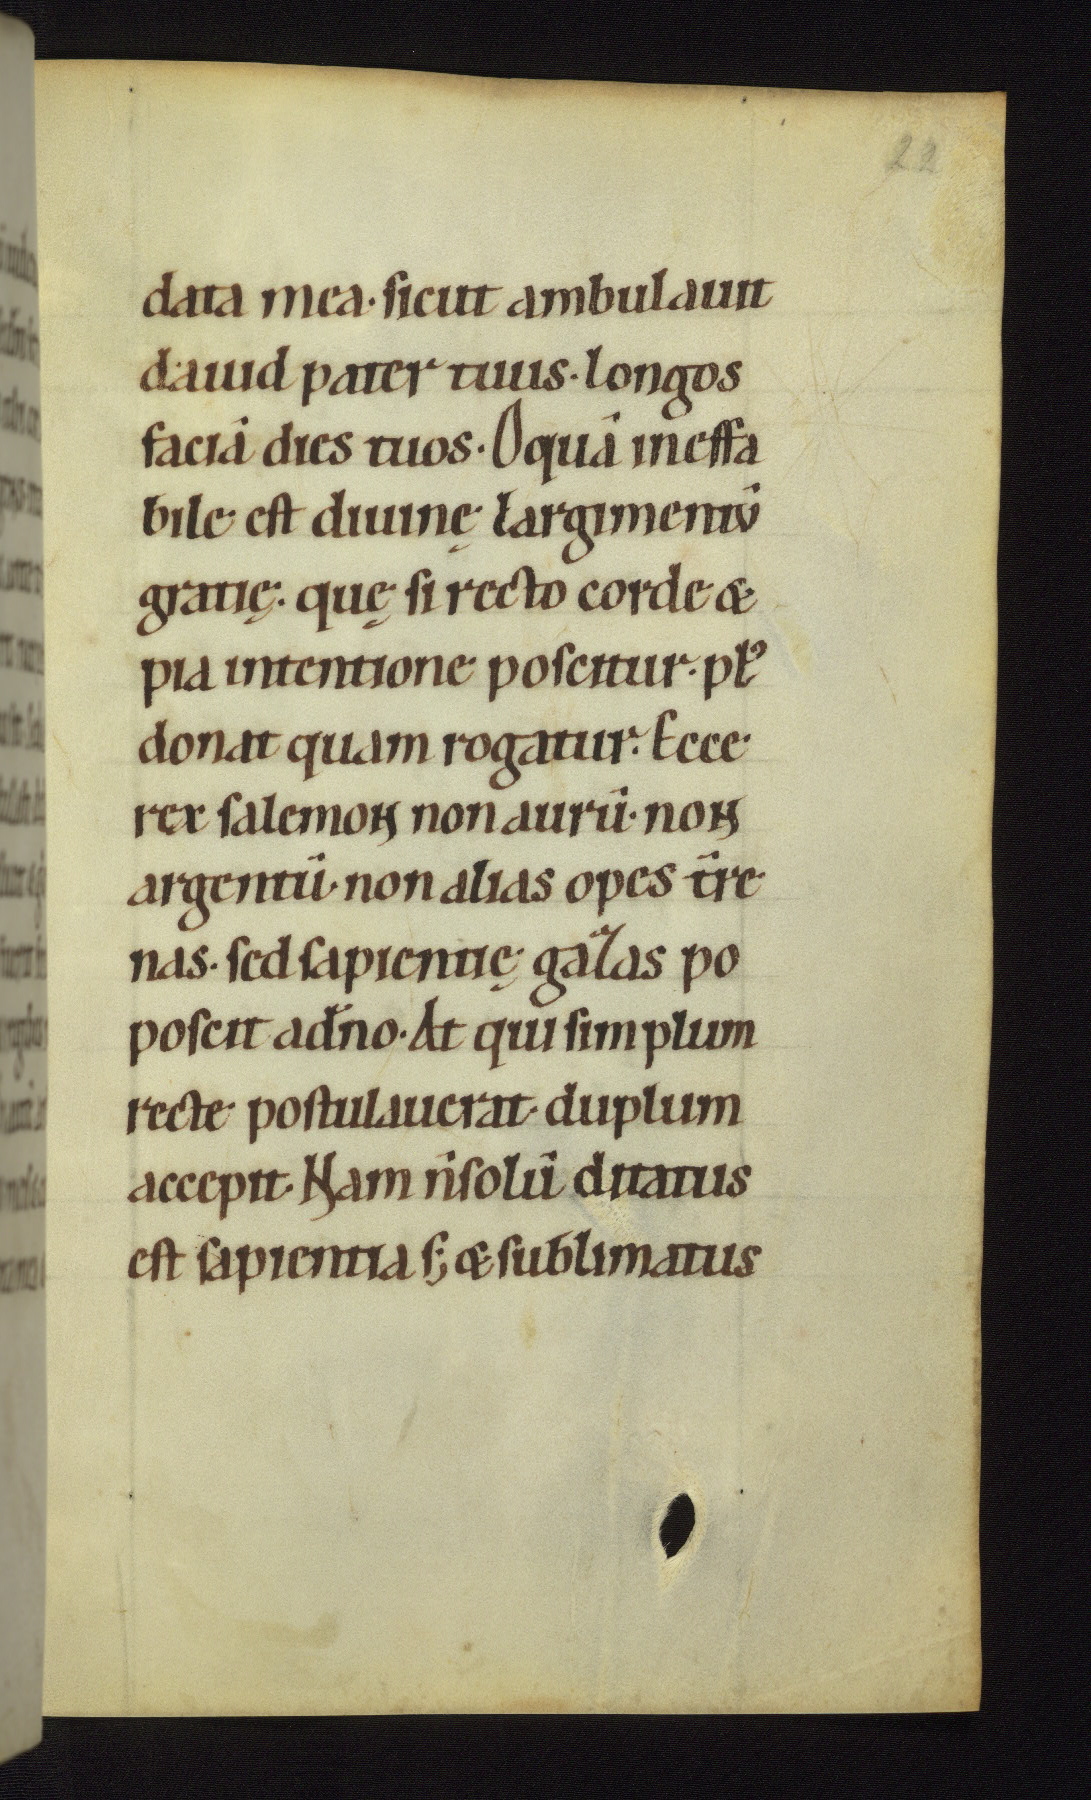 22
data mea· sicut ambulauit
dauid pater tuus· longos
faciā dies tuos· O quā ineffa
bile est diuinę largimentū
gratię· quę si recto corde &
pia intentione poscitur· pł᾽
donat quam rogatur· Ecce
rex salemoN non aurū· noN
argentū· non alias opes t̄re
nas· sed sapientię gazas po
poscit a dn̄o· At qui simplum
recte postulauerat· duplum
accepit· Nam n̄ solū ditatus
est sapientia s; & sublimatus